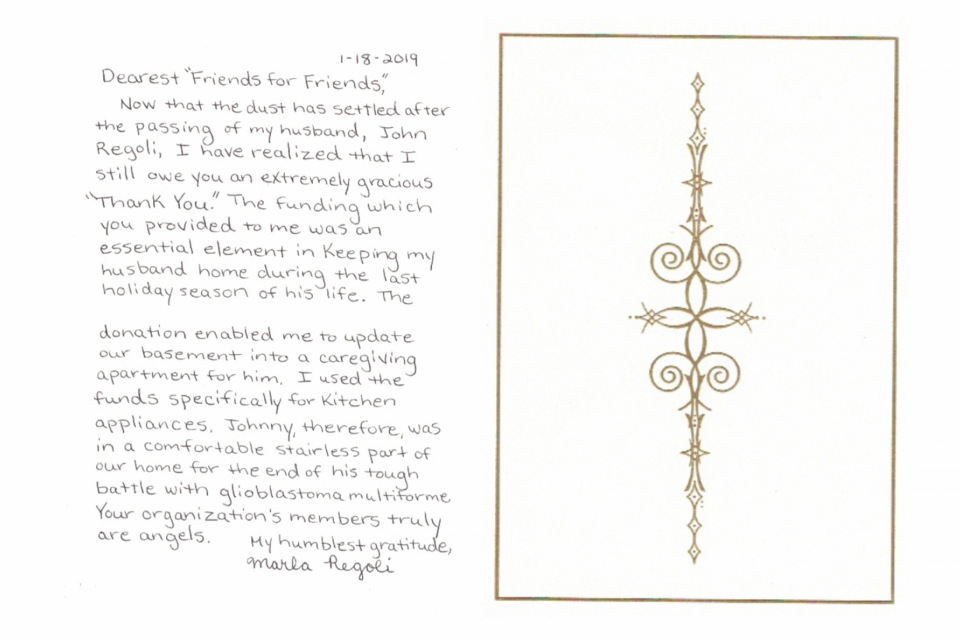 1-18-2019
Dearest "Friends for Friends,"
Now that the dust has settled after
the passing of my husband, John
Regoli, I have realized that I
still owe you an extremely gracious
"Thank You." The funding which
you provided to me was an
essential element in keeping my
husband home during the last
holiday season of his life. The
donation enabled me to update
our basement into a caregiving
apartment for him. I used the
funds specifically for kitchen
appliances. Johnny, therefore, was
in a comfortable stairless part of
our home for the end of his tough
battle with glioblastoma multiforme
Your organization's members truly
are angels.
My humblest gratitude,
Marla Regoli